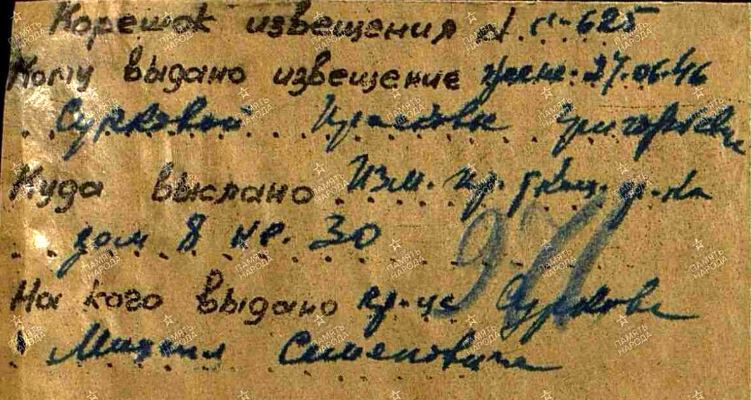 Корешок извещения № п-625
Кому выдано извещение жене. 27.06.46
Сурковой Прасковье Григорьевне
Куда выслано Изм. пр.
дом 8 кв. 30
На кого выдано кр-ца Суркова
Михаил Семеновича
971